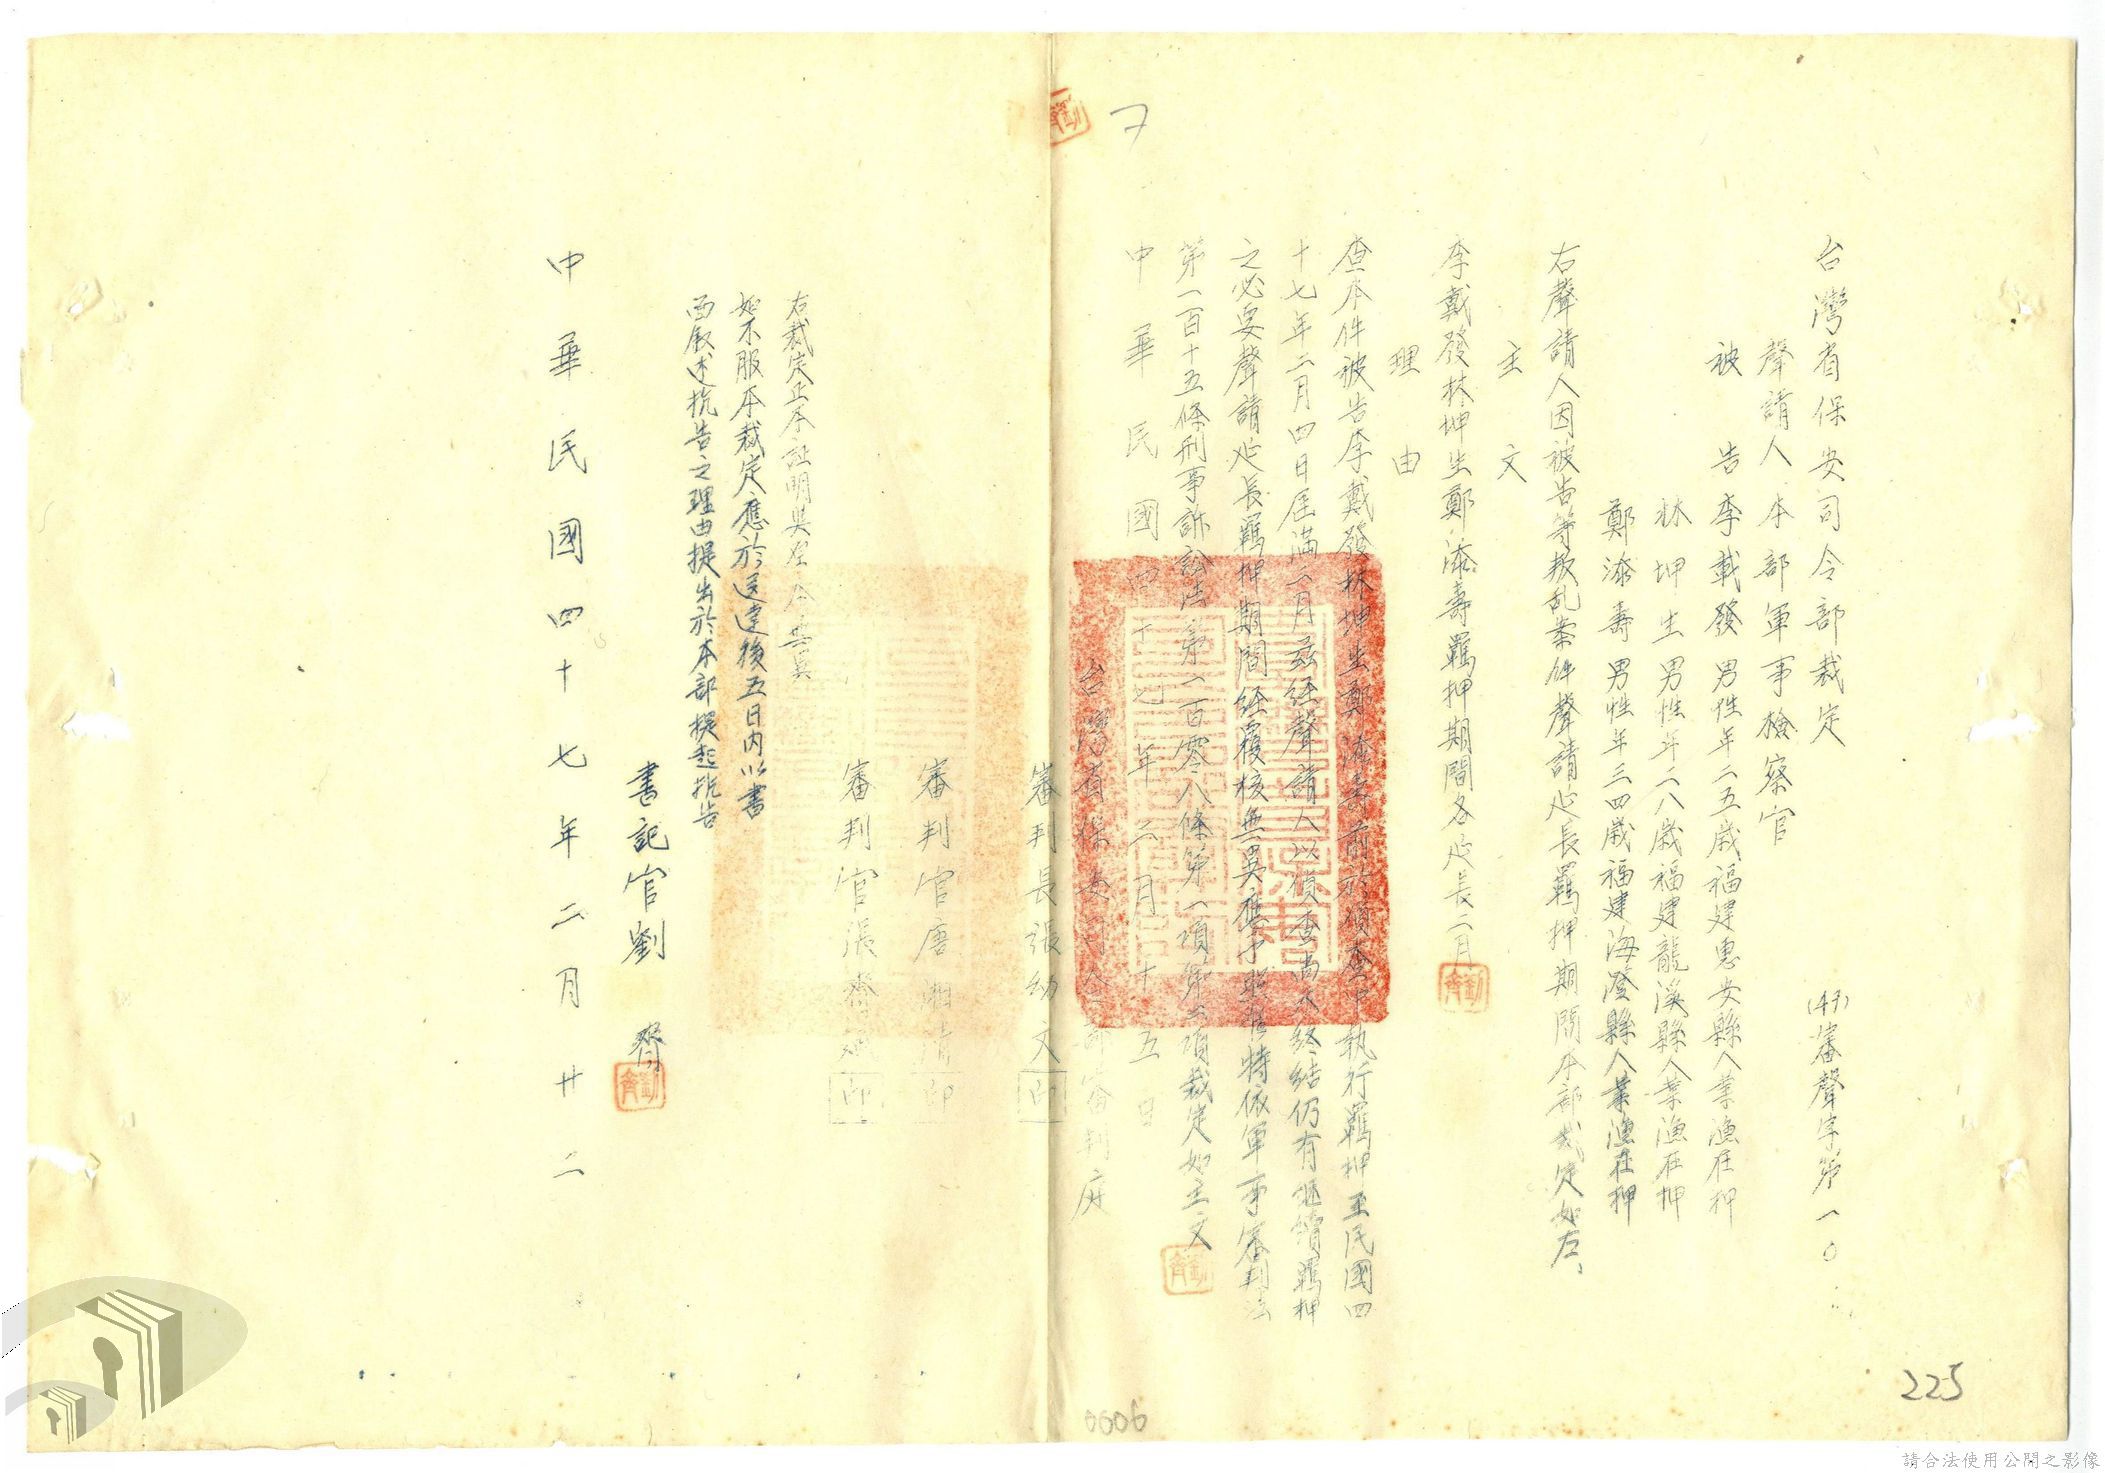 台灣省保安司令部裁定
(47)審聲字第一〇
聲請人本部軍事檢察官
被告李戴發男性年二五歲福建惠安縣人業漁在押
林坤生男性年二八歲福建龍溪縣人業漁在押
鄭添壽男性年三四歲福建海澄縣人業漁在押
右聲請人因被告等叛乱案件聲請延長羈押期間本部裁定如左
主文
李戴發林坤生鄭添壽羈押期間各延長二月
理由
查本件被告李戴發林坤生鄭添壽前於偵查中執行羈押至民國四
十七年二月四日屆滿一月茲經聲請人以偵查尚未終結仍有繼續羈押
之必要聲請延長羈押期間經覆核無異應予照准特依軍事審判法
第一百十五條刑事訴訟法第一百零八條第一項第二項裁定如主文
中華民國四十七年二月十五日
台灣省保安司令部審判庭
審判長張幼文印
審判官唐湘清印
審判官張齊斌印
右裁定正本証明與原本無異
如不服本裁定應於送達後五日內以書
面敘述抗告之理由提出於本部提起抗告
書記官劉齊
中華民國四十七年二月廿二
225
0606
請合法使用公開之影像